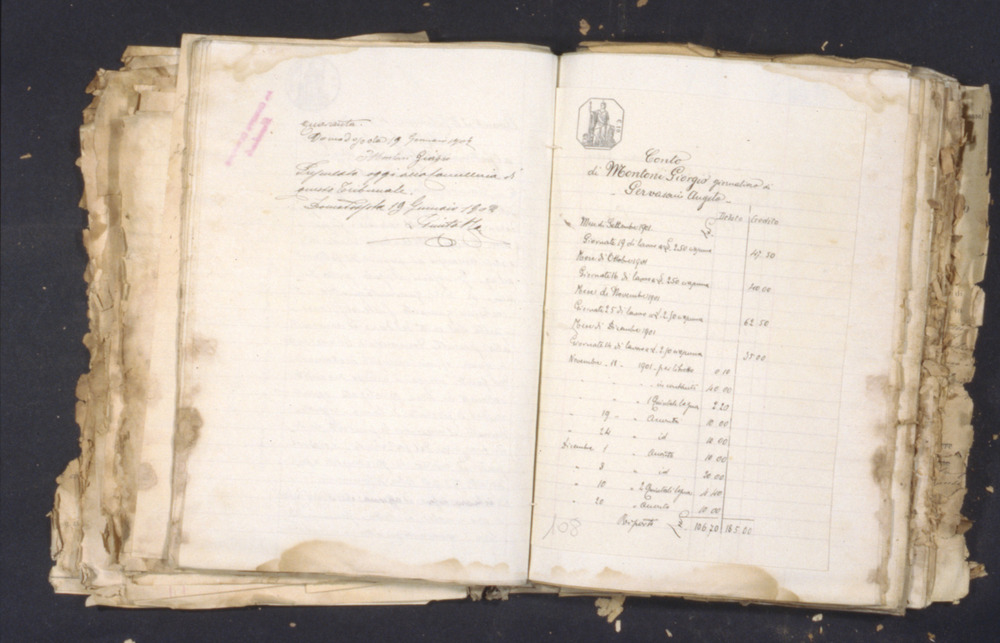 quaranta.
Domodossola 19 Gennaio 1908
Giorgio
oggi alla Cancelleria di
questo Tribunale.
Domodossola 19 Gennaio 1908
Conto
di Montoni Giorgio giornaliero di
Gervasini Angelo
Debito Credito
Mese di Settembre 1901 £
Giornate 19 di lavoro a £. 2.50 ognuna 47.50
Mese di Ottobre 1901
Giornate 16 di lavoro a £. 2.50 ognuna 40.00
Mese di Novembre 1901
Giornate 25 di lavoro a £. 2.50 ognuna 62.50
Mese di Dicembre 1901
Giornate 14 di lavoro a £. 2.50 ognuna 35.00
Novembre 11 1901 per libretto 0.10
" " in contanti 40.00
" " 1 Quintale legna 2.20
" 19 " Acconto 10.00
" 24 " id 10.00
Dicembre 1 " Acconto 10.00
" 8 " id 20.00
" 10 " 2 Quintali legna 4.40
" 20 " Acconto 10.00
Riporto £ 106.70 185.00
108